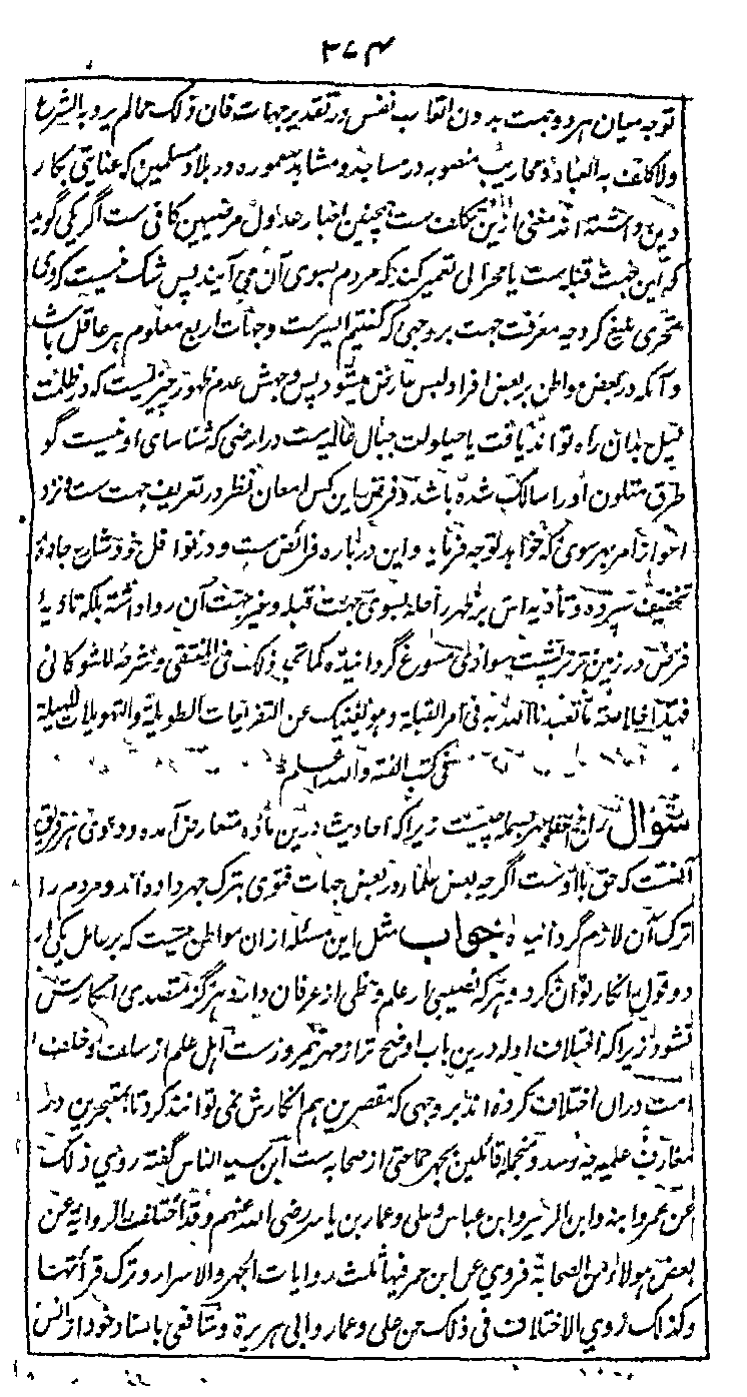 ۳۷۴
توجه میان هر دو جهت بدون اتعاب نفس در تقدیر جهات فان ذلک مما لم یرد به الشرع
ولا کلف به العباد و محاریب منصوبه در مساجد و مشاهد معموره در بلاد مسلمین که عنایتی بکار
دین داشته اند مغنی ازین تکلف ست همچنین اخبار عدول مرضیین کافی ست اگر یکی گوید
که این جهت قبله ست یا محرابی تعمیر کند که مردم بسوی آن می آیند پس شک نیست که وی
تحری بلیغ کرد چه معرفت جهت بر وجهی که گفتیم ایسرست و جهات اربع معلوم هر عاقل باشد
و آنکه در بعض مواطن بر بعض افراد لبس عارض میشود پس وجهش عدم ظهور چیزیست که در ظلمت
لیل بدان راه تواند یافت یا حیلولت جبال عالیه ست در ارضی که شناسای او نیست گو
طرق متلون او را سالک شده باشد و فرض این کس امعان نظر در تعریف جهت ست و نزد
اعواز امر بهر سوی که خواهد توجه فرماید و این درباره فرائض ست و در نوافل خود شارع جاده
تخفیف سپرده و تأدیه اش بر ظهر راحله بسوی جهت قبله و غیر جهت آن روا داشته بلکه تادیهٔ
فرض در زمین تر بر پشت سواری مسوغ گردانیده کما تجد ذلک فی المنتقی و شرحه للشوکانی
فهذا خلاصة ما تعبدنا الله به فی امر القبلة و هو یغنیک عن التفریعات الطویلة والتهویلات المهیلة
فی کتب الفقه والله اعلم
سوال راجح اخفا و جهر بسمله چیست زیراکه احادیث درین ماده متعارض آمده و دعوی هر فریق
آنست که حق با اوست اگرچه بعض علما در بعض جهات فتوی بترک جهر داده اند و مردم را
ترک آن لازم گردانیده جواب مثل این مسئله از ان مواطن نیست که بر عامل یکی از
دو قول انکار توان کرد و هر که نصیبی از علم و حظی از عرفان دارد هرگز متصدی انکارش
نشود زیراکه اختلاف ادله درین باب اوضح تر از مهر نیمروزست اهل علم از سلف و خلف
امت دران اختلاف کرده اند بر وجهی که مقصرین هم انکارش نمی توانند کرد تا بمتبحرین در
معارف علمیه چه رسد و منجمله قائلین بجهر جماعتی از صحابه ست ابن سید الناس گفته روی ذلک
عن عمر وابنه وابن الزبیر وابن عباس وعلی وعمار بن یاسر رضی الله عنهم وقد اختلفت الروایة عن
بعض هولاء من الصحابة فروی عن ابن عمر فیها ثلث روایات الجهر والاسرار وترک قرأتها
وکذلک روی الاختلاف فی ذلک عن علی وعمار وابی هریرة وشافعی باسناد خود از انس